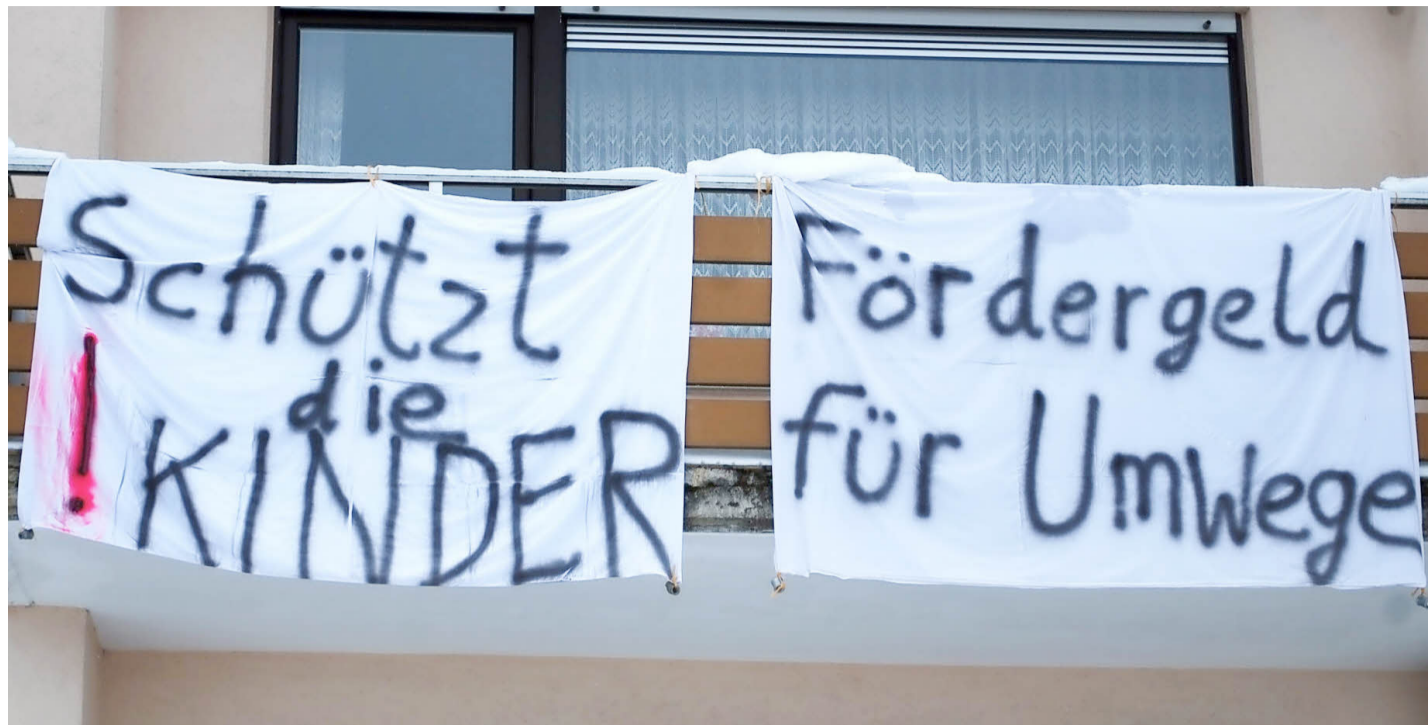 Schützt
die
! KINDER
Fördergeld
für Umwege